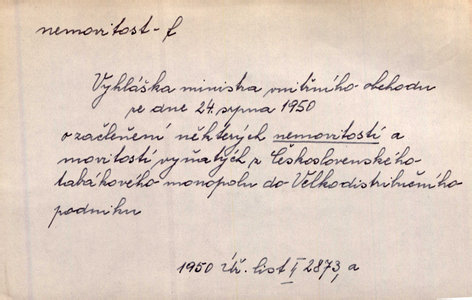 nemovitost - f
Vyhláška ministra vnitřního obchodu
ze dne 24. srpna 1950
o začlenění některých nemovitostí a
movitostí vyňatých z Československého
tabákového monopolu do Velkodistribučního
podniku
1950 Úř. list I 2873, a